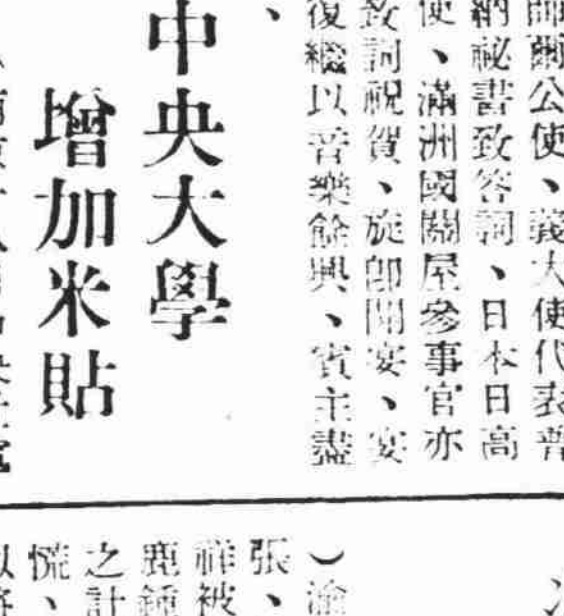 師爾公使、義大使代表普
納秘書致答詞、日本日高
使、滿洲國關屋參事官亦
致詞祝賀、旋即開宴、宴
復繼以音樂餘興、賓主盡
、
中央大學
增加米貼
）渝
張、
祥被
鹿鍾
之計
慌、